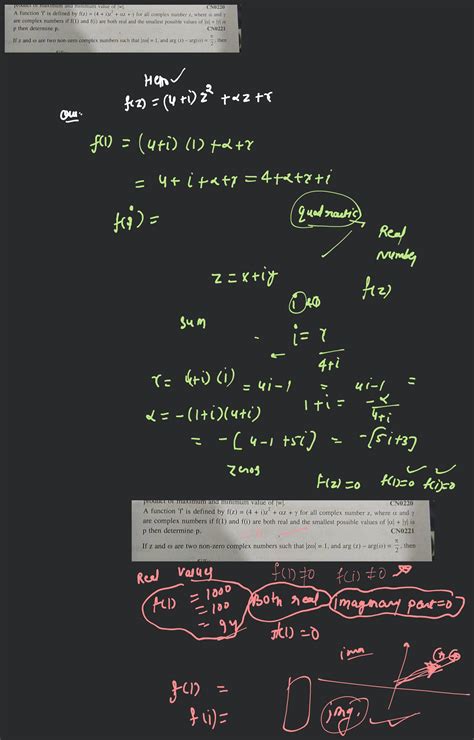 product of maximum and minimum value of |w|. CN0220
A function 'f' is defined by f(z) = (4 + i)z² + αz + γ for all complex number z, where α and γ
are complex numbers if f(1) and f(i) are both real and the smallest possible values of |α| + |γ| is
p then determine p. CN0221
If z and ω are two non-zero complex numbers such that |zω| = 1, and arg (z) – arg(ω) = π/2, then
f(z) = (4+i) z² + αz + γ
f(1) = (4+i) (1) + α + γ
= 4 + i + α + γ = 4 + α + γ + i
f(i) =
quadratic
Real
Number
f(z)
z = x + iy
sum
i = γ / 4+i
γ = (4+i) (i) = 4i-1 = 4i-1 =
1 + i = -α / 4+i
α = -(1+i)(4+i)
= -[4-1+5i] = -[5i+3]
zeros
f(z)=0 f(1)=0 f(i)=0
product of maximum and minimum value of |w|. CN0220
A function 'f' is defined by f(z) = (4 + i)z² + αz + γ for all complex number z, where α and γ
are complex numbers if f(1) and f(i) are both real and the smallest possible values of |α| + |γ| is
p then determine p. CN0221
If z and ω are two non-zero complex numbers such that |zω| = 1, and arg (z) – arg(ω) = π/2, then
Real Values f(1) ≠ 0 f(i) ≠ 0
f(1) = 1000
= 100
= 94
Both real
imaginary part=0
f(1) =
f(i) =
img.